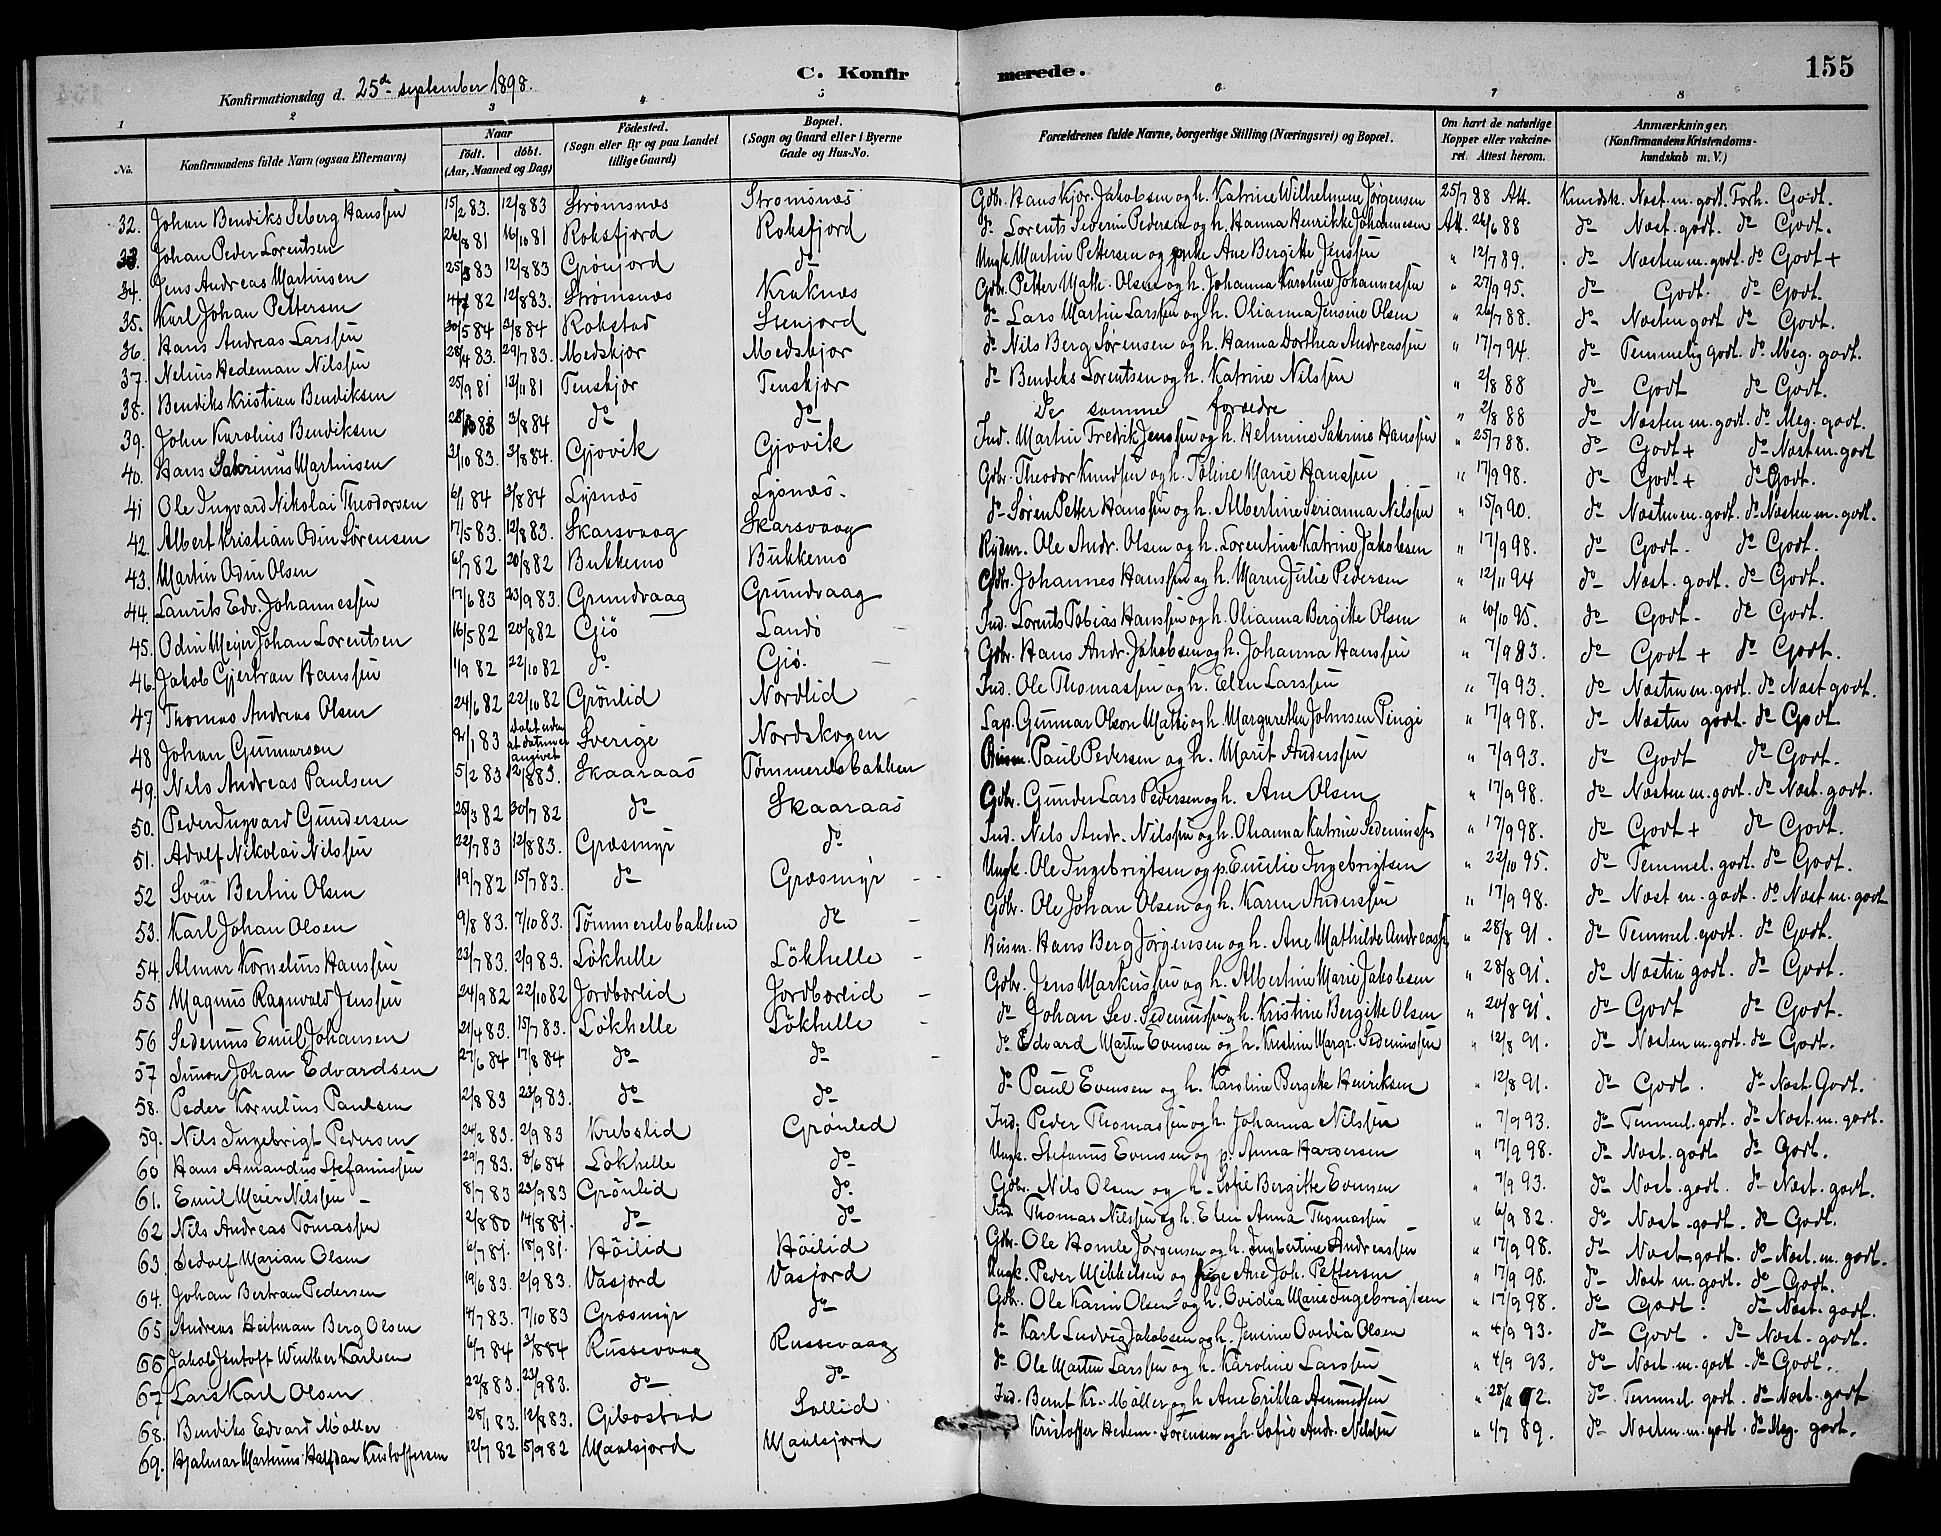 Konfirmationsdag d. 25de september 1898. C. Konfirmerede. 155
1 2 3 4 5 6 7 8
No. Konfirmandens fulde Navn (ogsaa Efternavn) Naar født. døbt. (Aar, Maaned og Dag) Fødested. (Sogn eller By og paa Landet tillige Gaard) Bopæl. (Sogn og Gaard eller i Byerne Gade og Hus-No. Forældrenes fulde Navne, borgerlige Stilling (Næringsvei) og Bopæl. Om havt de naturlige Kopper eller vakcineret. Attest herom. Anmærkninger, (Konfirmandens Kristendomskundskab m. V.)
32. Johan Bendiks Seberg Hanssen 15/2 83. 12/8 83 Strømsnæs Strømsnæs Gdbr. Hans Kjør. Jakobsen og h. Katrine Wilhelmine Jørgensen 25/7 88 Att. Kundsk. Næst. m. godt. Forh. Godt.
33. Johan Peder Lorentsen 26/8 81 16/10 81 Roksfjord Roksfjord do Lorents Severin Pedersen og h. Hanna Henrikke Johannesen Att. 26/6 88 do Næst. godt. do Godt.
34. Jens Andreas Martinsen 25/3 83 12/8 83 Grønjord do Ungk. Martin Pettersen og pike Ane Bergitte Jenssen " 12/7 89. do Næsten m. godt. do Godt +
35. Karl Johan Pettersen 4/7 82 12/8 83. Strømsnæs Kraknæs Gdbr. Petter Math. Olsen og h. Johanna Karoline Johannessen " 27/9 95. do Godt. do Godt.
36. Hans Andreas Larssen 30/5 84 3/8 84 Rokstad Stenjord do Lars Martin Larssen og h. Olianna Jensine Olsen " 26/7 88. do Næsten godt do Godt.
37. Nelius Hedeman Nilssen 28/4 83. 29/7 83. Medskjær Medskjær do Nils Berg Sørensen og h. Hanna Dorthea Andreassen " 17/7 94. do Temmelig godt. do Meg. godt.
38. Bendiks Kristian Bendiksen 25/9 81 13/11 81 Tenskjær Tenskjær do Bendiks Lorentsen og h. Katrine Nilssen " 2/8 88 do Godt do Godt.
39. John Karolius Bendiksen 28/10 83 3/8 84 do do De samme forædre " 2/8 88 do Næsten m. godt. do Meg. godt.
40. Hans Sakrinus Martinsen 31/10 83. 3/8 84. Gjøvik Gjøvik Ind. Martin Fredrik Jenssen og h. Helmine Sakrine Hanssen " 25/7 88. do Godt + do Næst m. godt
41 Ole Ingvard Nikolai Theodorsen 6/1 84 3/8 84 Lysnæs Lysnæs. Gdbr. Theodor Knudsen og h. Toline Marie Hanssen " 17/9 98. do Godt + do Godt.
42. Albert Kristian Odin Sørensen 17/5 83. 12/8 83. Skarsvaag Skarsvaag do Søren Petter Hanssen og h. Albertine Serianna Nilssen " 15/9 90. do Næsten m. godt. do Næsten m. godt.
43. Martin Odin Olsen 6/7 82 20/8 82 Bukkemo Bukkemo Rydm. Ole Andr. Olsen og h. Lorentine Katrine Jakobsen " 17/9 98. do Godt. do Godt.
44. Laurits Edv. Johannessen 17/6 83 23/9 83. Grundvaag Grundvaag Gdbr. Johannes Hanssen og h. Maren Julie Pedersen " 12/11 94 do Næst. godt. do Godt.
45. Odin Meyer Johan Lorentsen 16/5 82 20/8 82 Gjø Landø Ind. Lorents Tobias Hanssen og h. Olianna Bergitte Olsen " 10/10 95. do Godt. do Godt.
46. Jakob Gjertran Hanssen 1/9 82 22/10 82 do Gjø. Gdbr. Hans Andr. Jakobsen og h. Johanna Hanssen " 7/9 83. do Godt + do Godt.
47 Thomas Andreas Olsen 24/6 82 22/10 82 Grønlid Nordlid Ind. Ole Thomassen og h. Elen Larssen " 7/9 93. do Næsten m. godt. do Næst godt.
48 Johan Gunnarsen 2/1 83 Døbt uden at datum er angivet Sverige Nordskogen Lap. Gunnar Olson Matti og h. Margaretha Johnsen Pingi " 17/9 98. do Næsten godt. do Godt
49. Nils Andreas Paulsen 5/2 83 12/8 83. Skaaraas Tømmerelvbakken Paul Pedersen og h. Marit Anderssen " 7/9 93. do Godt do Godt.
50. Peder Ingvard Gundersen 25/3 82 30/7 82 do Skaaraas Gdbr. Gunder Lars Pedersen og h. Ane Olsen " 17/9 98. do Næsten m. godt. do Næst. godt.
51. Adolf Nikolai Nilssen 22/7 83 12/8 83. Græsmyr do Ind. Nils Andr. Nilssen og h. Ohanna Katrine " 17/9 98. do Godt + do Godt.
52 Svein Bertin Olsen 19/7 82 15/7 83. do Græsmyr Ungk. Ole Ingebrigtsen og p. Emilie Ingebrigtsen " 22/10 95. do Temmel. godt. do Godt.
53. Karl Johan Olsen 9/8 83. 7/10 83. Tømmerelvbakken do Gdbr. Ole Johan Olsen og h. Karen Anderssen " 17/9 98. do Næst m. godt. do Næst m. godt
54. Almar Kornelius Hanssen 23/7 83. 2/9 83. Løkhelle Løkhelle Hans Berg Jørgensen og h. Ane Mathilde " 28/8 91. do Temmel. godt. do Godt.
55 Magnus Ragnvald Jenssen 24/9 82 22/10 82 Jordbærlid Jordbærlid Gdbr. Jens Markussen og h. Albertine Marie Jakobsen " 28/8 91. do Næsten godt. do Godt.
56 Sedenius Emil Johansen 21/4 83. 15/7 83. Løkhelle Løkhelle do Johan Sev. og h. Kristine Bergitte Olsen " 20/8 91. do Godt do Godt.
57 Simon Johan Edvardsen 27/6 84 17/8 84 do do do Edvard Martin Evensen og h. Kristine Margr. " 12/8 91. do Næsten m. godt. do Godt.
58. Peder Kornelius Paulsen 2/8 83 23/9 83. do do do Paul Evensen og h. Karoline Bergitte Henriksen " 12/8 91. do Godt. do Næst. Godt.
59. Nils Ingebrigt Pedersen 24/2 83. 2/9 83 Krebslid Grønlid Ind. Peder Thomassen og h. Johanna Nilssen " 7/9 93. do Temmel. godt. do Næst. m. godt.
60 Hans Amandus Stefanussen 29/7 83. 8/6 84 Løkhelle do Ungk. Stefanus Evensen og p. Anna " 17/9 98. do Næst. godt do Godt.
61. Emil Meier Nilssen 8/7 83 23/9 83 Grønlid do. Gdbr. Nils Olsen og h. Sofie Bergitte Evensen " 7/9 93. do Næst. godt. do Næst. godt.
62 Nils Andreas Tomassen 2/8 80 14/8 81. do do Ind. Thomas Nilssen og h. Elen Anna Thomassen " 6/9 82. do Næst. godt. do Godt.
63. Marian Olsen 6/7 81. 18/9 81. Høilid Høilid Gdbr. Ole Jørgensen og h. Ingbertine Andreassen " 17/9 98. do Næst. godt. do Næst. m. godt.
64. Johan Bertran Pedersen 19/6 83. 2/9 83. Vasjord Vasjord Ungk. Peder Mikkelsen og pige Ane Joh. Pettersen " 17/9 98. do Næst m. godt. do Godt.
65 Andreas Heitman Berg Olsen 4/7 83. 7/10 83 Græsmyr do Gdbr. Ole Karin Olsen og h. Ovidia Marie Ingebrigtsen " 17/9 98. do Godt. do Næst. godt.
66 Jakob Jentoft Winther Karlsen 6/7 84 3/8 84 Russevaag Russevaag do Karl Ludvig Jakobsen og h. Jensine Ovidia Olsen " 4/9 93. do Godt. do Næst. godt.
67 Lars Karl Olsen 22/8 83. 23/9 83. do do do Ole Martin Larssen og h. Karoline Larssen " 4/9 93. do Næst. m. godt. do Godt.
68. Bendiks Edvard Møller 28/1 83. 12/8 83. Gibostad Sollid Ind. Bernt Kr. Møller og h. Ane Erikka " 28/11 92. do Temmel. godt. do Næst. godt
69. Hjalmar Martinus Halfdan Kristoffersen 12/7 82 5/9 82 Maalsjord Maalsjord Kristoffer Hedem. Sørensen og h. Sofie Andr. Nilssen " 4/7 89. do Næsten m. godt. do Meg. godt.